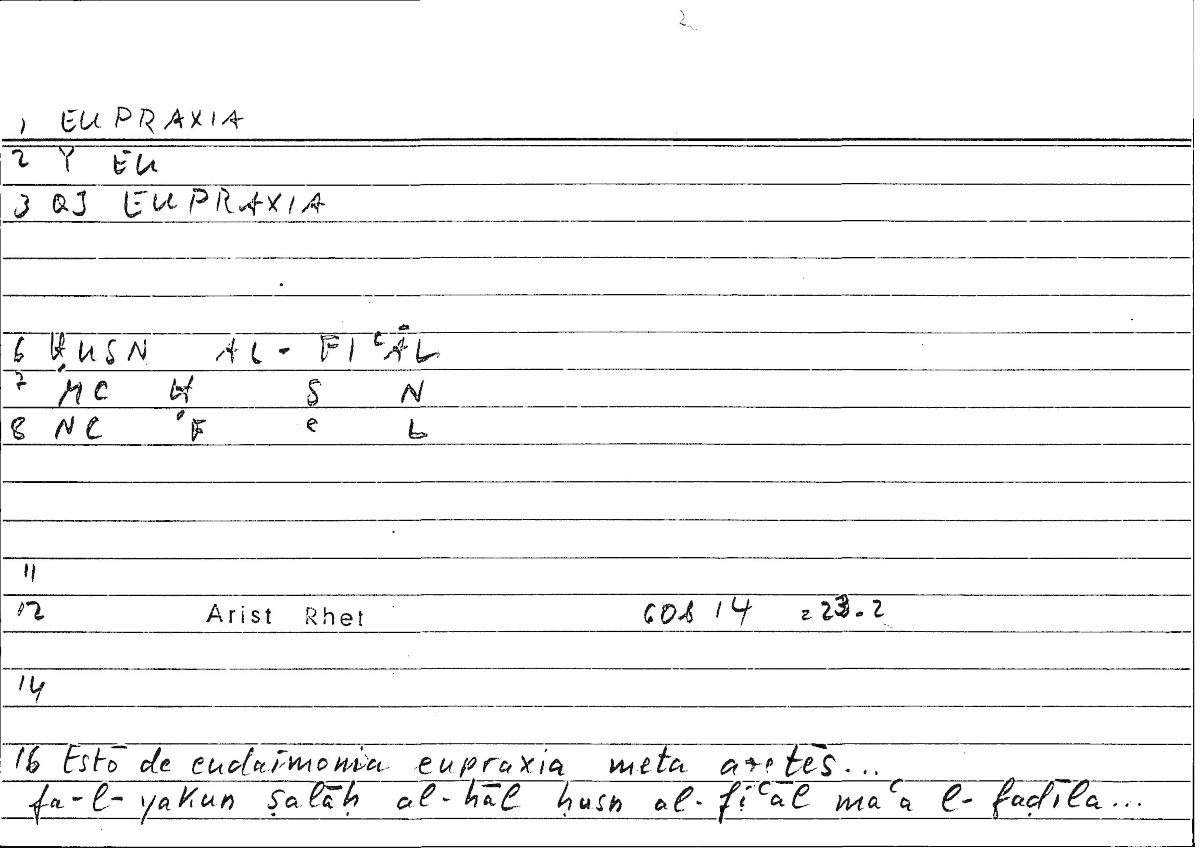 2
1 EUPRAXIA
2 Y EU
3 QJ EUPRAXIA
6 ḤUSN AL-FIʿĀL
7 MC Ḥ S N
8 NC F ʿ L
11
12 Arist Rhet 60b 14 = 23.2
14
16 Estō de eudaimonia eupraxia meta aretēs...
fa-l-yakun ṣalāḥ al-ḥāl ḥusn al-fiʿāl maʿa l-faḍīla...